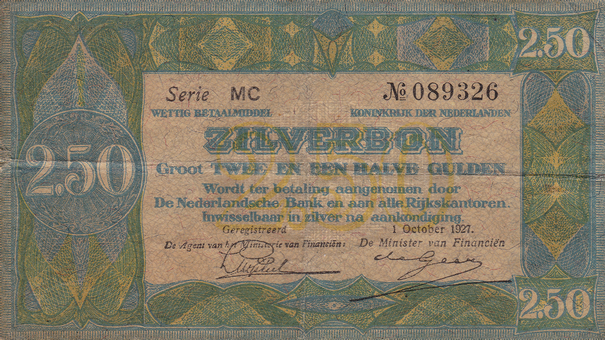 2.50
Serie MC № 089326
WETTIG BETAALMIDDEL KONINKRIJK DER NEDERLANDEN
ZILVERBON
2.50
Groot TWEE EN EEN HALVE GULDEN
Wordt ter betaling aangenomen door
De Nederlandsche Bank en aan alle Rijkskantoren.
Inwisselbaar in zilver na aankondiging.
Geregistreerd 1 October 1927.
De Agent van het Ministerie van Financiën: De Minister van Financiën
de Geer
2.50